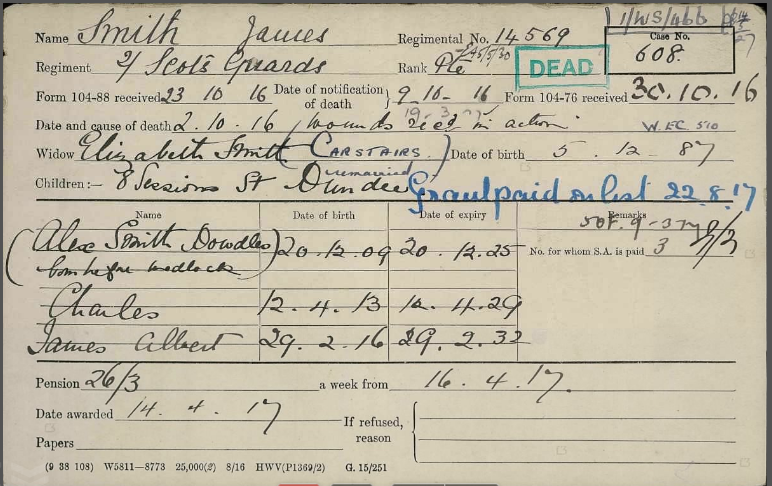 1/WS/466
Name Smith James Regimental No. 14569 Case No. 608.
Regiment 2/ Scots Guards Rank Pte DEAD
Form 104-88 received 23 10 16 Date of notification of death 9-10-16 Form 104-76 received 30.10.16
Date and cause of death 2.10.16 wounds rec'd in action
Widow Elizabeth Smith (CARSTAIRS) Date of birth 5. 12. 87
remarried
Children:— 8 Sessions St Dundee Grant paid on list 22.8.17
Name Date of birth Date of expiry Remarks
(Alex Smith Dowdles 20.12.09 20.12.25 No. for whom S.A. is paid 3
born before wedlock)
Charles 12.4.13 12.4.29
James Albert 29.2.16 29.2.32
Pension 26/3 a week from 16.4.17.
Date awarded 14.4.17 If refused, reason
Papers
(9 38 108) W5811—8773 25,000(2) 8/16 HWV(P1369/2) G. 15/251